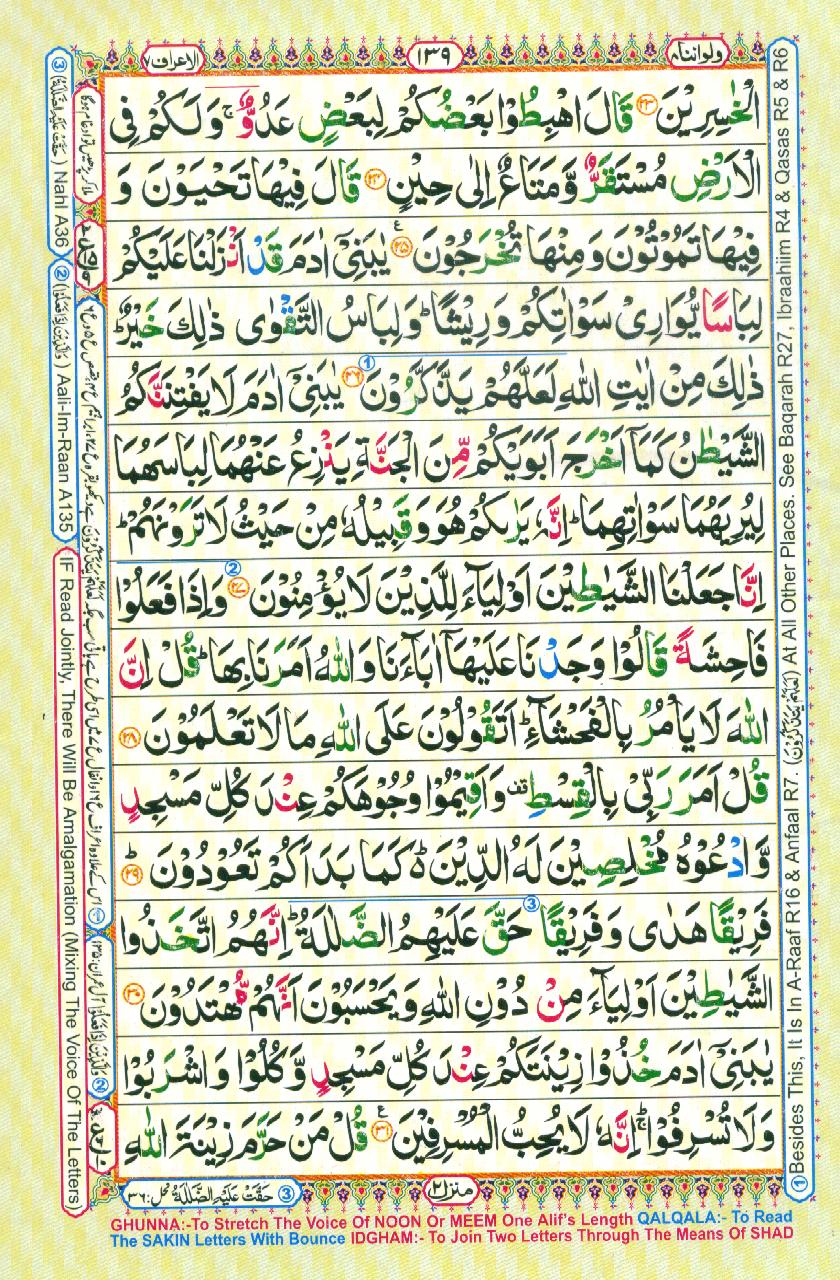 ولواننا۸
۱۳۹
الاعراف۷
الْخٰسِرِيْنَ ۲۳ قَالَ اهْبِطُوْا بَعْضُكُمْ لِبَعْضٍ عَدُوٌّ ۚ وَلَكُمْ فِى
الْاَرْضِ مُسْتَقَرٌّ وَّمَتَاعٌ اِلٰى حِيْنٍ ۲۴ قَالَ فِيْهَا تَحْيَوْنَ وَ
فِيْهَا تَمُوْتُوْنَ وَمِنْهَا تُخْرَجُوْنَ ۲۵ يٰبَنِىْۤ اٰدَمَ قَدْ اَنْزَلْنَا عَلَيْكُمْ
لِبَاسًا يُّوَارِىْ سَوْاٰتِكُمْ وَرِيْشًا ؕ وَلِبَاسُ التَّقْوٰى ذٰلِكَ خَيْرٌ ؕ
ذٰلِكَ مِنْ اٰيٰتِ اللّٰهِ لَعَلَّهُمْ يَذَّكَّرُوْنَ ① ۲۶ يٰبَنِىْۤ اٰدَمَ لَا يَفْتِنَنَّكُمُ
الشَّيْطٰنُ كَمَاۤ اَخْرَجَ اَبَوَيْكُمْ مِّنَ الْجَنَّةِ يَنْزِعُ عَنْهُمَا لِبَاسَهُمَا
لِيُرِيَهُمَا سَوْاٰتِهِمَا ؕ اِنَّهٗ يَرٰىكُمْ هُوَ وَقَبِيْلُهٗ مِنْ حَيْثُ لَا تَرَوْنَهُمْ ؕ
اِنَّا جَعَلْنَا الشَّيٰطِيْنَ اَوْلِيَآءَ لِلَّذِيْنَ لَا يُؤْمِنُوْنَ ② ۲۷ وَاِذَا فَعَلُوْا
فَاحِشَةً قَالُوْا وَجَدْنَا عَلَيْهَاۤ اٰبَآءَنَا وَاللّٰهُ اَمَرَنَا بِهَا ؕ قُلْ اِنَّ
اللّٰهَ لَا يَاْمُرُ بِالْفَحْشَآءِ ؕ اَتَقُوْلُوْنَ عَلَى اللّٰهِ مَا لَا تَعْلَمُوْنَ ۲۸
قُلْ اَمَرَ رَبِّىْ بِالْقِسْطِ قف وَاَقِيْمُوْا وُجُوْهَكُمْ عِنْدَ كُلِّ مَسْجِدٍ
وَّادْعُوْهُ مُخْلِصِيْنَ لَهُ الدِّيْنَ ؕ كَمَا بَدَاَكُمْ تَعُوْدُوْنَ ۲۹
فَرِيْقًا هَدٰى وَفَرِيْقًا حَقَّ عَلَيْهِمُ الضَّلٰلَةُ ③ ؕ اِنَّهُمُ اتَّخَذُوا
الشَّيٰطِيْنَ اَوْلِيَآءَ مِنْ دُوْنِ اللّٰهِ وَيَحْسَبُوْنَ اَنَّهُمْ مُّهْتَدُوْنَ ۳۰
يٰبَنِىْۤ اٰدَمَ خُذُوْا زِيْنَتَكُمْ عِنْدَ كُلِّ مَسْجِدٍ وَّكُلُوْا وَاشْرَبُوْا
وَلَا تُسْرِفُوْا ۚ اِنَّهٗ لَا يُحِبُّ الْمُسْرِفِيْنَ ۳۱ قُلْ مَنْ حَرَّمَ زِيْنَةَ اللّٰهِ
منزل۲
③ حَقَّتْ عَلَيْهِ الضَّلٰلَةُ نحل: ۳۶
① Besides This, It Is In A-Raaf R16 & Anfaal R7. (لَعَلَّهُمْ يَذَّكَّرُوْنَ) At All Other Places. See Baqarah R27, Ibraahiim R4 & Qasas R5 & R6
③ (حَقَّتْ عَلَيْهِ الضَّلٰلَةُ) Nahl A36
② (وَالَّذِيْنَ اِذَا فَعَلُوْا) Aali-Im-Raan A135
IF Read Jointly, There Will Be Amalgamation (Mixing The Voice Of The Letters)
GHUNNA:-To Stretch The Voice Of NOON Or MEEM One Alif's Length QALQALA:- To Read
The SAKIN Letters With Bounce IDGHAM:- To Join Two Letters Through The Means Of SHAD